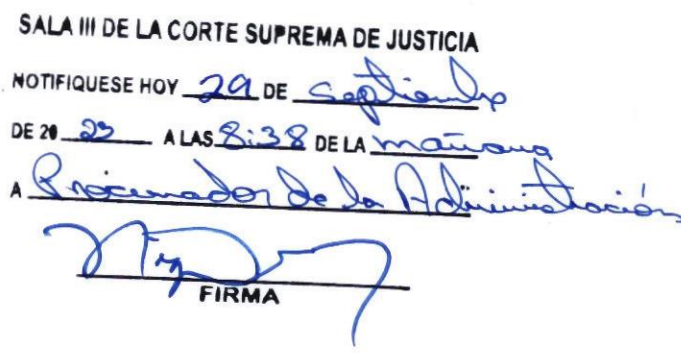 SALA III DE LA CORTE SUPREMA DE JUSTICIA
NOTIFIQUESE HOY 29 DE Septiembre
DE 20 23 A LAS 8:38 DE LA mañana
A Procurador de la Administración
FIRMA